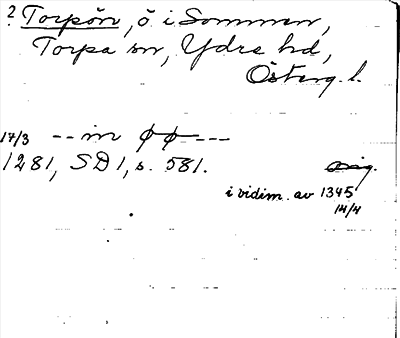 ? Torpön, ö i Sommen,
Torpa sn, Ydre hd,
Österg. l.
17/3 -- in øø ---
1281, SD 1, s. 581. orig.
i vidim. av 1345
14/4